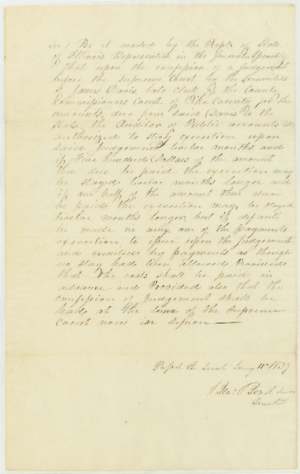 Sec 1 Be it enacted by the People of State
of Illinois Represented in the General Assembly
That upon the confession of a Judgement
before the Supreme Court by the Securities
of James Davis, late Clerk of the County
Commissioners Court of Pike County for the
amounts, due from said Davis to the
State, the Auditor of Public accounts is
authorized to stay execution upon
said Judgement twelve months and
if Five hundred Dollars of the amount
thus due be paid the execution may
be stayed twelve months longer and
if one half of the amount then due
be paid the execution may be stayed
twelve months longer, but if default
be made in any one of the payments
execution to issue upon the Judgement
and credited by payments as though
no stay had been allowed Provided
that the costs shall be paid in
advance and Provided also that the
confession of Judgement shall be
had at the term of the Supreme
Court now in session
Passed the Senate Jany 11th 1837
Benj Bond Secy
Senate